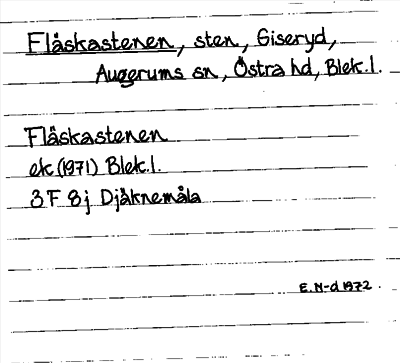 Flåskastenen, sten, Giseryd,
Augerums sn, Östra hd, Blek.l.
Flåskastenen
ek (1971) Blek.l.
3F 8j Djåknemåla
E.N-d 1972.